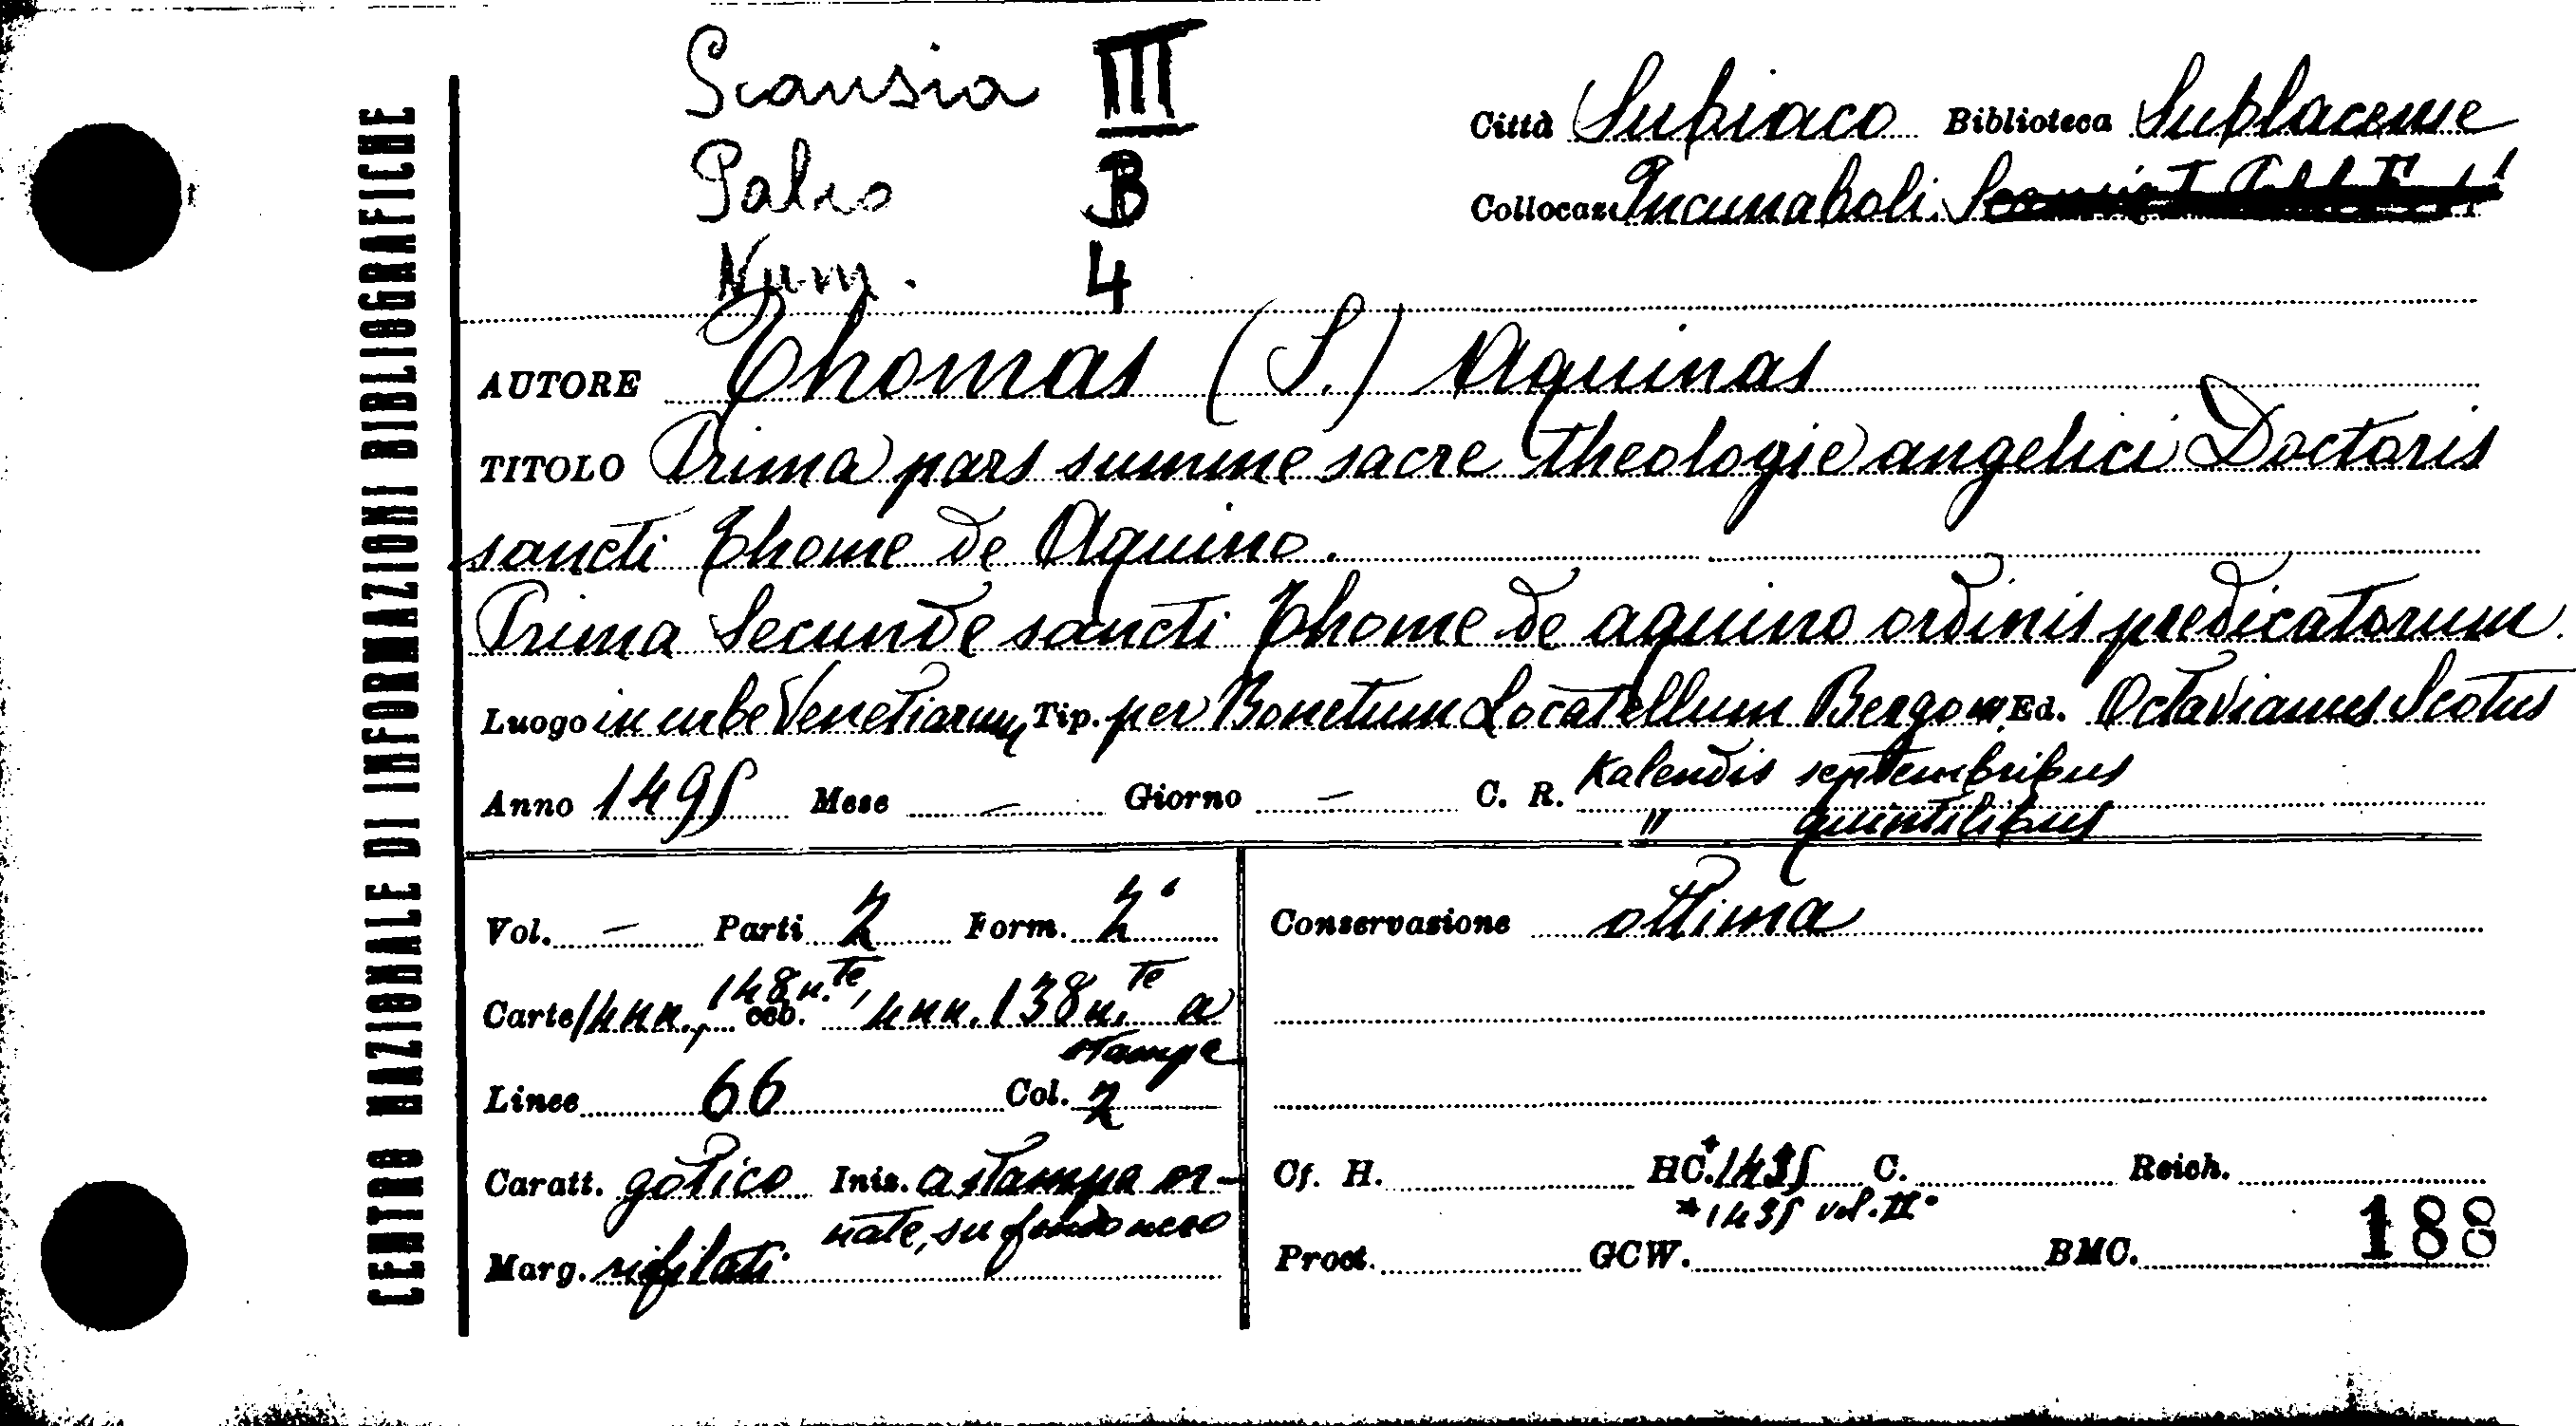 CENTRO NAZIONALE DI INFORMAZIONI BIBLIOGRAFICHE
Scansia III
Palco B
Num. 4
Città Subiaco Biblioteca Sublacense
Collocaz. Incunaboli.
AUTORE Thomas (S.) Aquinas
TITOLO Prima pars summe sacre theologie angelici Doctoris
sancti Thome de Aquino.
Prima Secunde sancti Thome de aquino ordinis predicatorum.
Luogo in urbe Venetiarum Tip. per Bonetum Locatellum Bergom. Ed. Octavianus Scotus
Anno 1495 Mese — Giorno — C. R. Kalendis septembribus
" quintilibus
Vol. — Parti 2 Form. 2°
Carte 4 nn., 148 n.te, ceb. 4 nn. 138 n.te a
stampe
Linee 66 Col. 2
Caratt. gotico Iniz. a stampa or-
nate, su fondo nero
Marg. rifilati
Conservazione ottima
Cf. H. HC.*1435 C. Reich.
*1435 vol. II°
Proct. GCW. BMC.
188